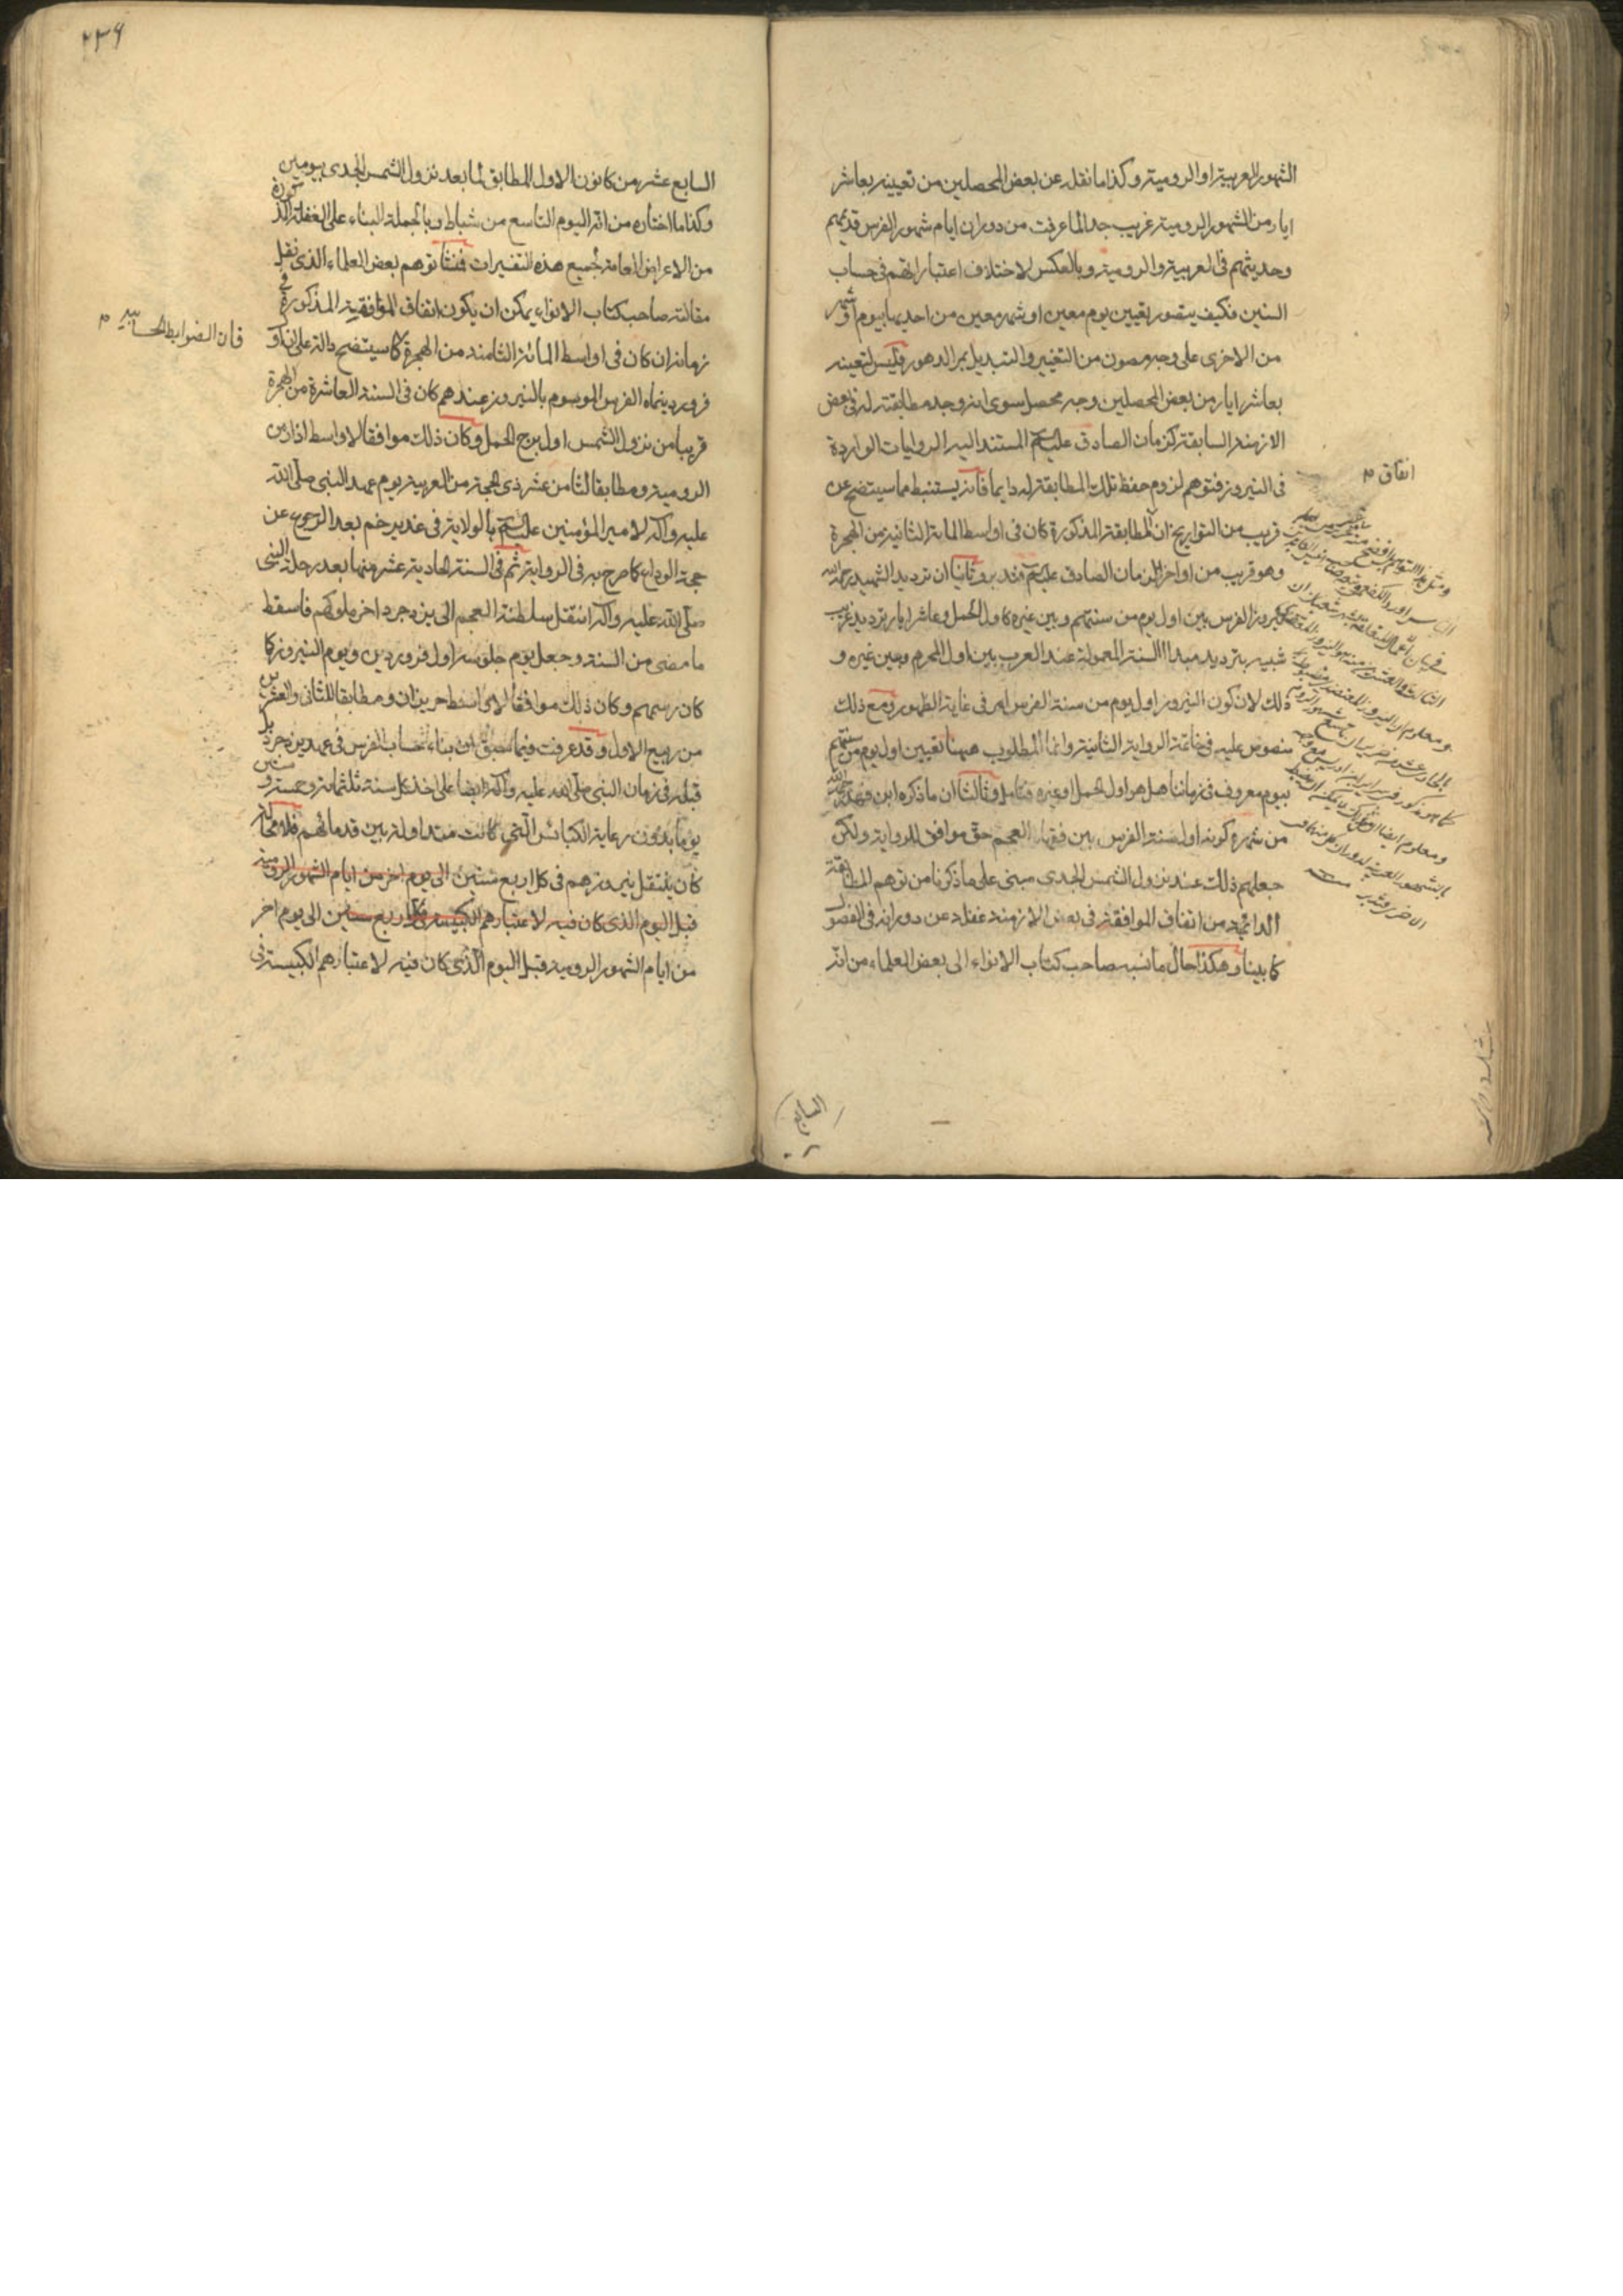 الشهور العربية او الرومية وكذا ما نقله عن بعض المحصلين من تعيينه بعاشر
ايار من الشهور الرومية غريب جدا لما عرفت من دوران ايام شهور الفرس قديمهم
وحديثهم في العربية والرومية وبالعكس لاختلاف اعتباراتهم في حساب
السنين فكيف يتصور تعيين يوم معين او شهر معين من احديها بيوم او شهر
من الاخرى على وجه مصون من التغيير والتبديل بمر الدهور فليس لتعيينه
بعاشر ايار من بعض المحصلين وجه محصل سوى انه وجد مطابقته له في بعض
الازمنة السابقة كزمان الصادق عليه السلم المستند اليه الروايات الواردة
في النيروز فتوهم لزوم حفظ تلك المطابقة له دايما فانه يستنبط مما سيتضح عن
قريب من التواريخ ان المطابقة المذكورة كان في اواسط المائة الثانية من الهجرة
وهو قريب من اواخر زمان الصادق عليه السلم فتدبر وثانيا ان ترديد الشهيد رحمه الله
نيروز الفرس بين اول يوم من سنتهم وبين غيره كاول الحمل وعاشر ايار ترديد غريب
شبيه بترديد مبدا السنة المعمولة عند العرب بين اول المحرم وبين غيره و
ذلك لان كون النيروز اول يوم من سنة الفرس امر في غاية الظهور ومع ذلك
منصوص عليه في خاتمة الرواية الثانية وانما المطلوب ههنا تعيين اول يوم من سنتهم
بيوم معروف في زماننا هل هو اول الحمل او غيره فتامل وثالثا ان ما ذكره ابن فهد رحمه الله
من شهرة كونه اول سنة الفرس بين فقهاء العجم حق موافق للرواية ولكن
جعلهم ذلك عند نزول الشمس الجدى مبنى على ما ذكرنا من توهم المطابقة
الدائمية من اتفاق الموافقة في بعض الازمنة غفلة عن دورانه في الفصول
كما بينا وهكذا حال ما نسبه صاحب كتاب الانواء الى بعض العلماء من انه
اتفاق م
السابع
٢٣٦
السابع عشر من كانون الاول المطابق لما بعد نزول الشمس الجدى بيومين
وكذا ما اختاره من انه اليوم التاسع من شباط وبالجملة البناء على الغفلة المذكورة
من الاعراض العامة لجميع هذه التفسيرات فمنشا توهم بعض العلماء الذى نقل
مقالته صاحب كتاب الانواء يمكن ان يكون اتفاق الموافقة المذكورة في
زمانه ان كان في اواسط المائة الثامنة من الهجرة كما سيتضح دالة على ان اول
فان الضوابط الحسابية م
فروردينماه الفرس الموسوم بالنيروز عندهم كان في السنة العاشرة من الهجرة
قريبا من نزول الشمس اول برج الحمل وكان ذلك موافقا لاواسط اذار من
الرومية ومطابقا لثامن عشر ذى الحجة من العربية يوم عهد النبى صلى الله
عليه وآله لامير المؤمنين عليه السلم بالولاية في غدير خم بعد الرجوع عن
حجة الوداع كما صرح به في الرواية ثم في السنة الحادية عشر منها بعد رحلة النبى
صلى الله عليه وآله انتقل سلطنة العجم الى يزدجرد اخر ملوكهم فاسقط
ما مضى من السنة وجعل يوم جلوسه اول فروردين ويوم النيروز كما
كان رسمهم وكان ذلك موافقا لاواسط حزيران ومطابقا للثانى والعشرين
من ربيع الاول وقد عرفت فيما سبق ان بناء حساب الفرس في عهد يزدجرد بل
قبله في زمان النبى صلى الله عليه وآله ايضا على اخذ كل سنة ثلثمائة وخمسة وستين
يوما بدون رعاية الكبائس التى كانت متداولة بين قدمائهم فلا محالة
كان ينتقل نيروزهم في كل اربع سنين الى يوم اخر من ايام الشهور الرومية
قبل اليوم الذى كان فيه لاعتبارهم الكبيسة في كل اربع سنين الى يوم اخر
من ايام الشهور الرومية قبل اليوم الذى كان فيه لاعتبارهم الكبيسة في